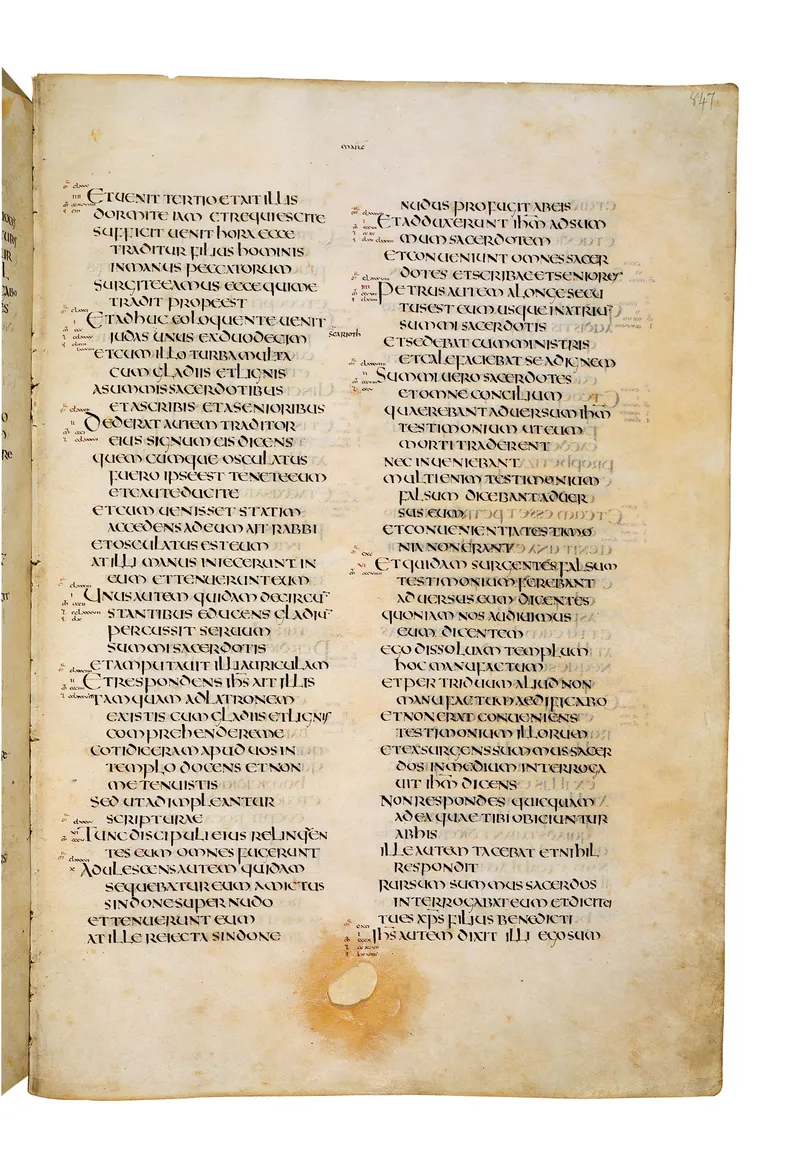 847
MARC
ET UENIT TERTIO ET AIT ILLIS
DORMITE IAM ET REQUIESCITE
SUFFICIT UENIT HORA ECCE
TRADITUR FILIUS HOMINIS
IN MANUS PECCATORUM
SURGITE EAMUS ECCE QUI ME
TRADIT PROPE EST
ET ADHUC EO LOQUENTE UENIT
IUDAS UNUS EX DUODECIM
SCARIOTH
ET CUM ILLO TURBA MULTA
CUM GLADIIS ET LIGNIS
A SUMMIS SACERDOTIBUS
ET A SCRIBIS ET A SENIORIBUS
DEDERAT AUTEM TRADITOR
EIUS SIGNUM EIS DICENS
QUEM CUMQUE OSCULATUS
FUERO IPSE EST TENETE EUM
ET CAUTE DUCITE
ET CUM UENISSET STATIM
ACCEDENS AD EUM AIT RABBI
ET OSCULATUS EST EUM
AT ILLI MANUS INIECERUNT IN
EUM ET TENUERUNT EUM
UNUS AUTEM QUIDAM DE CIRCU̅
STANTIBUS EDUCENS GLADIU̅
PERCUSSIT SERUUM
SUMMI SACERDOTIS
ET AMPUTAUIT ILLI AURICULAM
ET RESPONDENS IH̅S AIT ILLIS
TAMQUAM AD LATRONEM
EXISTIS CUM GLADIIS ET LIGNIS
COMPREHENDERE ME
COTIDIE ERAM APUD UOS IN
TEMPLO DOCENS ET NON
ME TENUISTIS
SED UT ADIMPLEANTUR
SCRIPTURAE
TUNC DISCIPULI EIUS RELINQEN
TES EUM OMNES FUGERUNT
ADULESCENS AUTEM QUIDAM
SEQUEBATUR EUM AMICTUS
SINDONE SUPER NUDO
ET TENUERUNT EUM
AT ILLE REIECTA SINDONE
NUDUS PROFUGIT AB EIS
ET ADDUXERUNT IH̅M AD SUM
MUM SACERDOTEM
ET CONUENIUNT OMNES SACER
DOTES ET SCRIBAE ET SENIORES
PETRUS AUTEM A LONGE SECU
TUS EST EUM USQUE IN ATRIU̅
SUMMI SACERDOTIS
ET SEDEBAT CUM MINISTRIS
ET CALEFACIEBAT SE AD IGNEM
SUMMI UERO SACERDOTES
ET OMNE CONCILIUM
QUAEREBANT ADUERSUM IH̅M
TESTIMONIUM UT EUM
MORTI TRADERENT
NEC INUENIEBANT
MULTI ENIM TESTIMONIUM
FALSUM DICEBANT ADUER
SUS EUM
ET CONUENIENTIA TESTIMO
NIA NON ERANT
ET QUIDAM SURGENTES FALSUM
TESTIMONIUM FEREBANT
ADUERSUS EUM DICENTES
QUONIAM NOS AUDIUIMUS
EUM DICENTEM
EGO DISSOLUAM TEMPLUM
HOC MANUFACTUM
ET PER TRIDUUM ALIUD NON
MANUFACTUM AEDIFICABO
ET NON ERAT CONUENIENS
TESTIMONIUM ILLORUM
ET EXSURGENS SUMMUS SACER
DOS IN MEDIUM INTERROGA
UIT IH̅M DICENS
NON RESPONDES QUICQUAM
AD EA QUAE TIBI OBICIUNTUR
AB HIS
ILLE AUTEM TACEBAT ET NIHIL
RESPONDIT
RURSUM SUMMUS SACERDOS
INTERROGABAT EUM ET DICIT EI
TU ES XP̅S FILIUS BENEDICTI
IH̅S AUTEM DIXIT ILLI EGO SUM